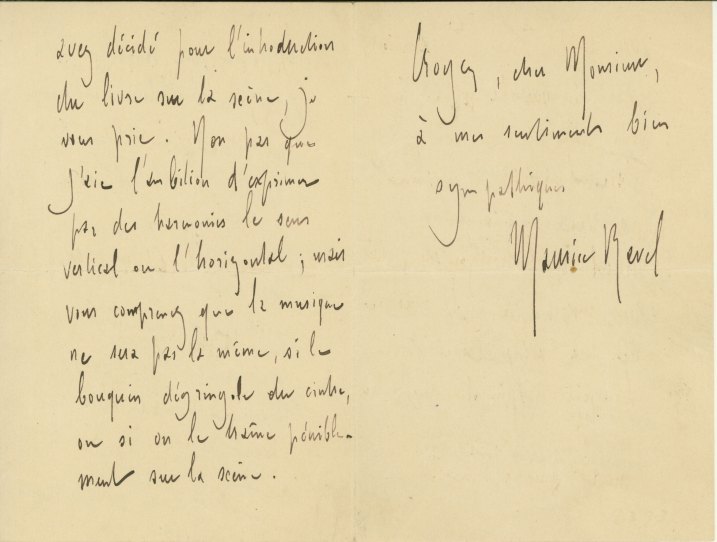 avez décidé pour l'introduction
du livre sur la scène, je
vous prie. Non pas que
j'aie l'ambition d'exprimer
par des harmonies le sens
vertical ou l'horizontal ; mais
vous comprenez que la musique
ne sera pas la même, si le
bouquin dégringole du cintre,
ou si on le traîne pénible-
ment sur la scène.
Croyez, cher Monsieur,
à mes sentiments bien
sympathiques
Maurice Ravel